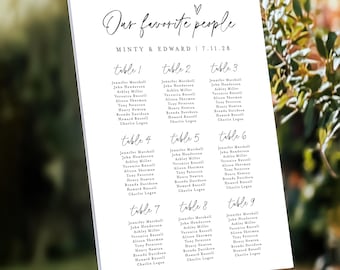 Our favorite people
MINTY & EDWARD | 7.11.28
table 1
Jennifer Marshall
John Henderson
Ashley Miller
Veronica Russell
Alison Sherman
Tony Peterson
Henry Newton
Brenda Davidson
Howard Russell
Charlie Logan
table 2
Jennifer Marshall
John Henderson
Ashley Miller
Veronica Russell
Alison Sherman
Tony Peterson
Henry Newton
Brenda Davidson
Howard Russell
Charlie Logan
table 3
Jennifer Marshall
John Henderson
Ashley Miller
Veronica Russell
Alison Sherman
Tony Peterson
Henry Newton
Brenda Davidson
Howard Russell
Charlie Logan
table 4
Jennifer Marshall
John Henderson
Ashley Miller
Veronica Russell
Alison Sherman
Tony Peterson
Henry Newton
Brenda Davidson
Howard Russell
Charlie Logan
table 5
Jennifer Marshall
John Henderson
Ashley Miller
Veronica Russell
Alison Sherman
Tony Peterson
Henry Newton
Brenda Davidson
Howard Russell
Charlie Logan
table 6
Jennifer Marshall
John Henderson
Ashley Miller
Veronica Russell
Alison Sherman
Tony Peterson
Henry Newton
Brenda Davidson
Howard Russell
Charlie Logan
table 7
Jennifer Marshall
John Henderson
Ashley Miller
Veronica Russell
Alison Sherman
Tony Peterson
Henry Newton
Brenda Davidson
Howard Russell
Charlie Logan
table 8
Jennifer Marshall
John Henderson
Ashley Miller
Veronica Russell
Alison Sherman
Tony Peterson
Henry Newton
Brenda Davidson
Howard Russell
Charlie Logan
table 9
Jennifer Marshall
John Henderson
Ashley Miller
Veronica Russell
Alison Sherman
Tony Peterson
Henry Newton
Brenda Davidson
Howard Russell
Charlie Logan